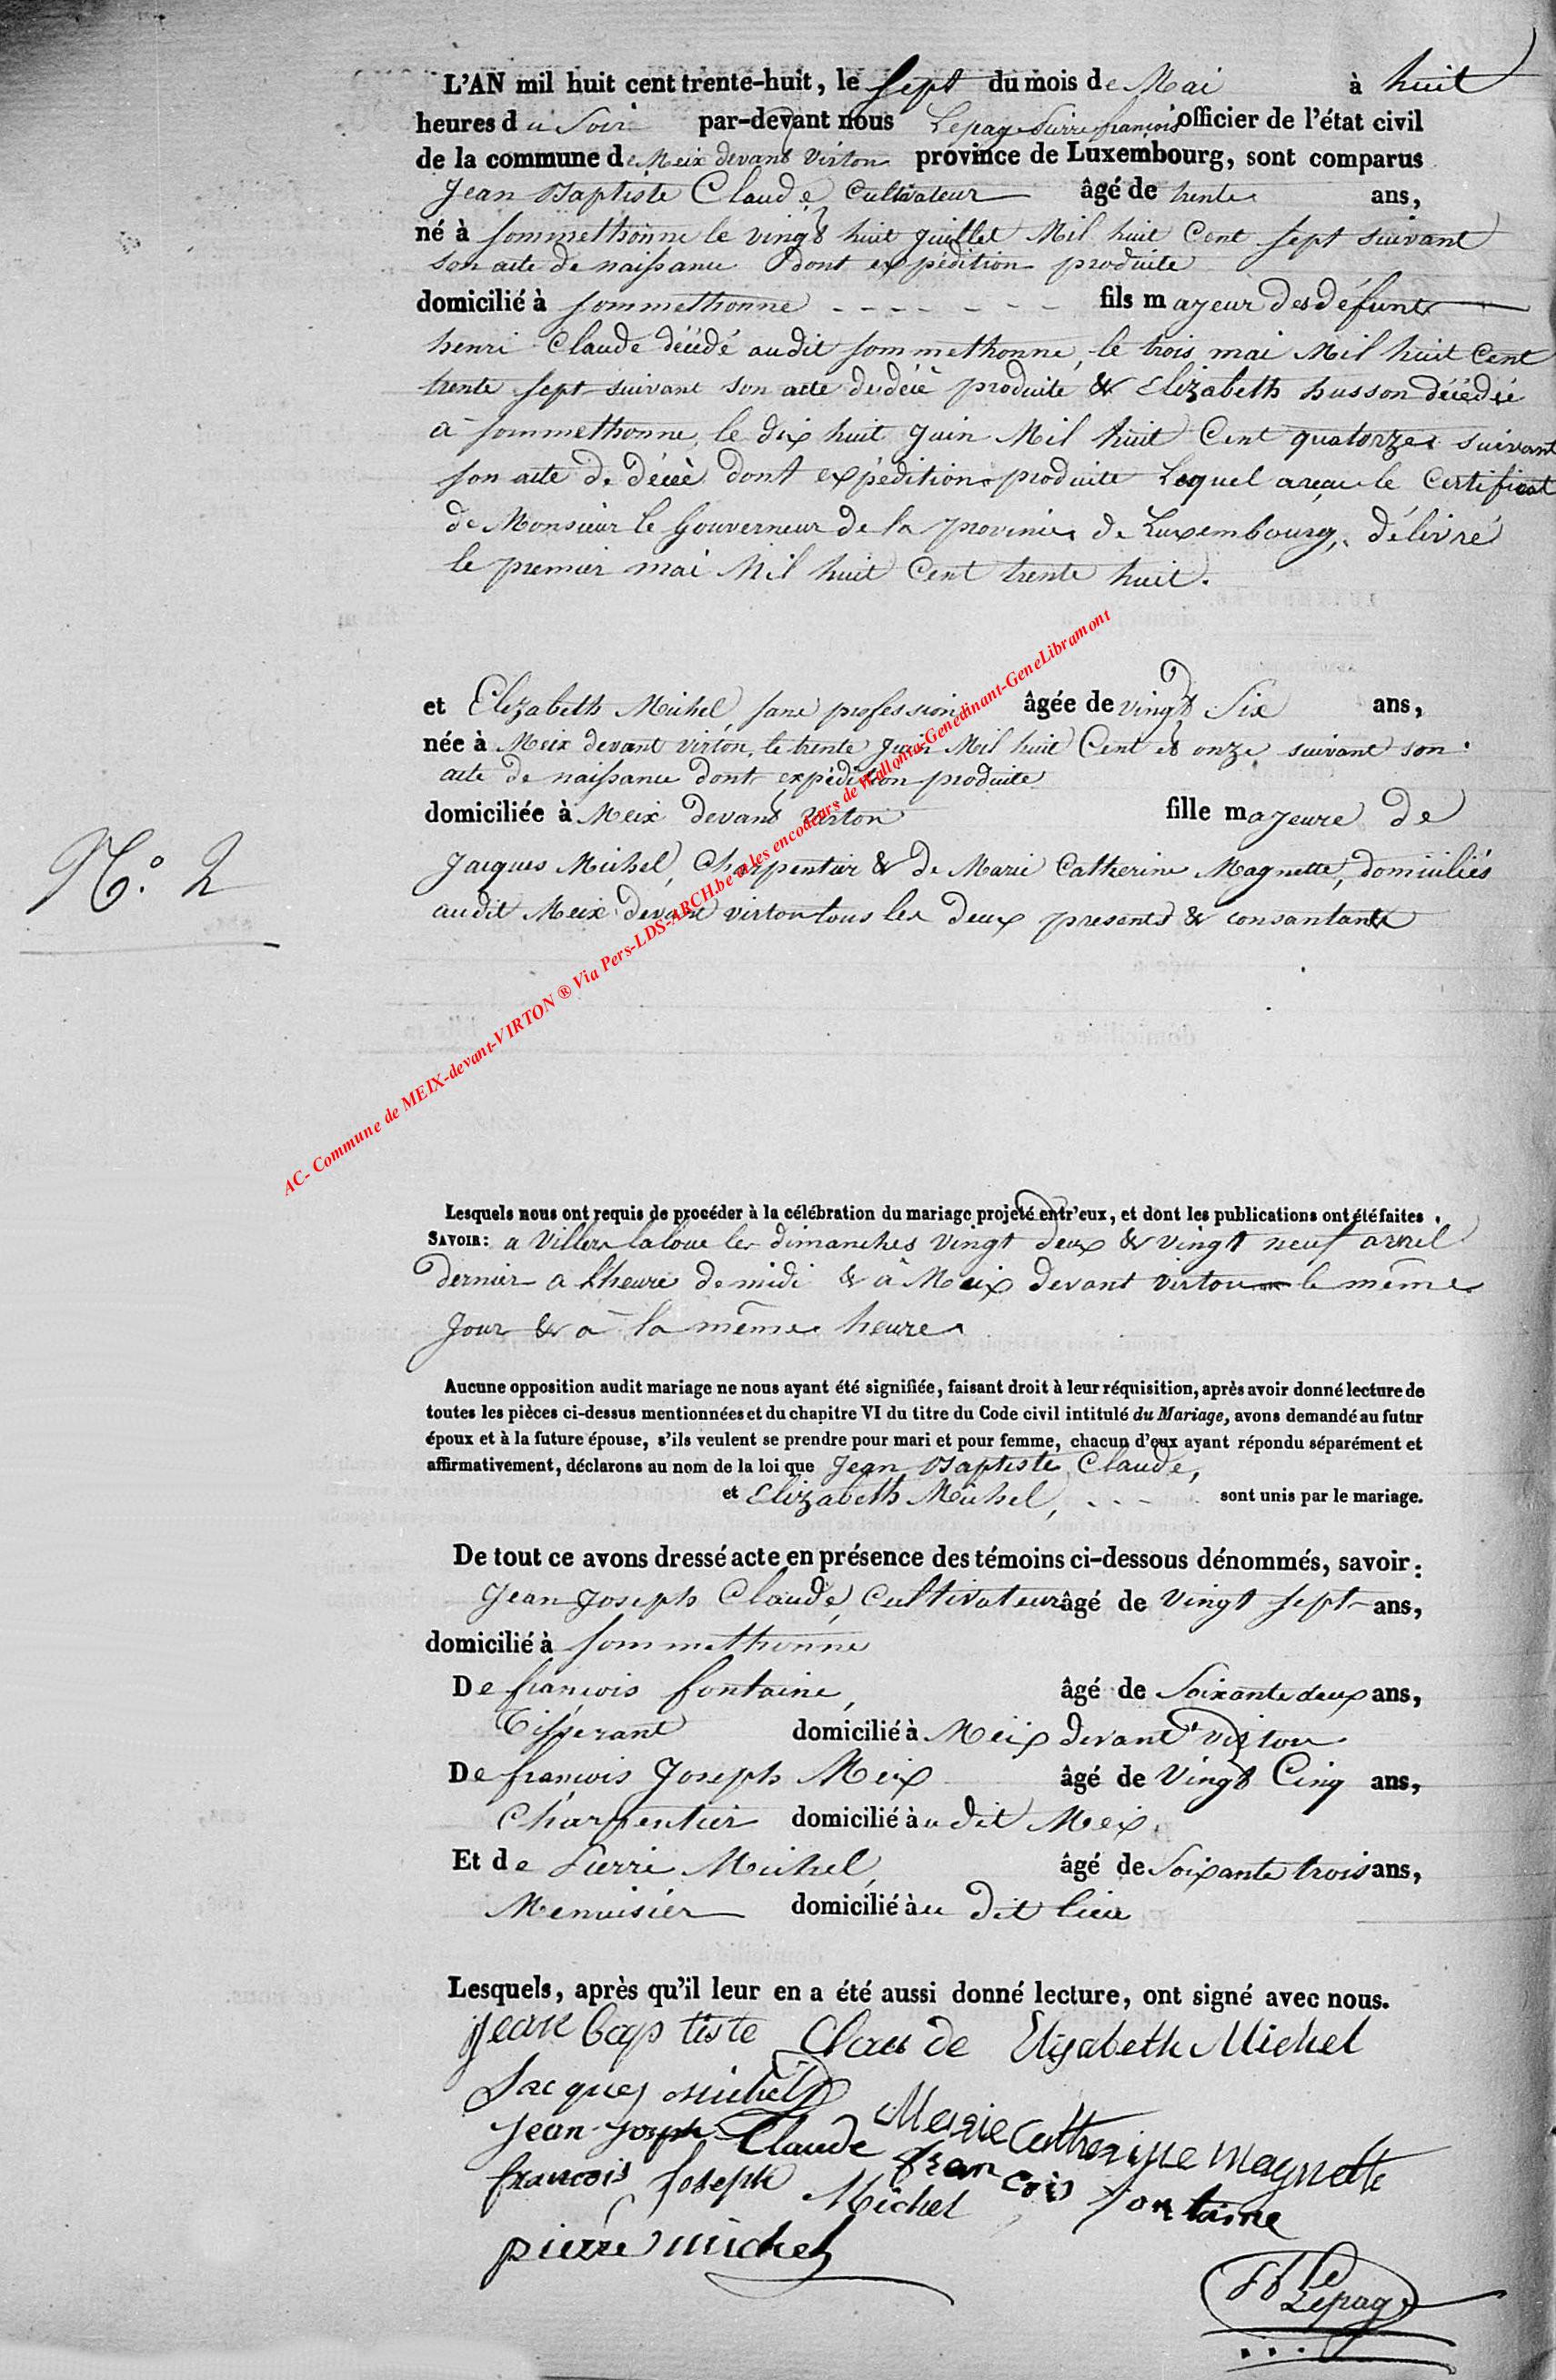 L'AN mil huit cent trente-huit, le sept du mois de Mai à huit
heures du Soir par-devant nous Lepage Pierre françois officier de l'état civil
de la commune de Meix devant Virton province de Luxembourg, sont comparus
Jean Baptiste Claude Cultivateur âgé de trente ans,
né à Sommethonne le vingt huit Juillet Mil huit Cent sept suivant
son acte de naissance dont expédition produite
domicilié à Sommethonne - - - - - - fils mayeur des défunts
henri Claude décédé audit Sommethonne, le trois mai Mil huit Cent
trente sept suivant son acte de décè produite & Elizabeth husson décédée
à Sommethonne, le dix huit Juin Mil huit Cent quatorze suivant
son acte de décè dont expédition produite Lequel a reçu le Certificat
de Monsieur le Gouverneur de la province de Luxembourg, délivré
le premier mai Mil huit Cent trente huit.
et Elizabeth Michel, sans profession, âgée de vingt Six ans,
née à Meix devant virton, le trente Juin Mil huit Cent et onze suivant son
acte de naissance dont expédition produite
domiciliée à Meix devant Virton fille mayeure de
N.o 2
Jacques Michel, Charpentier & de Marie Catherine Magnette, domiciliés
audit Meix devant virton tous les deux presents & consantants
AC- Commune de MEIX-devant-VIRTON ® Via Pers-LDS-ARCH.be et les encodeurs de Wallonia-Genedinant-GeneLibramont
Lesquels nous ont requis de procéder à la célébration du mariage projeté entr'eux, et dont les publications ont été faites,
SAVOIR: a Villers laloue les dimanches vingt deux & vingt neuf avril
dernier a l'heure de midi & à Meix devant virton le même
Jour & à la même heure
Aucune opposition audit mariage ne nous ayant été signifiée, faisant droit à leur réquisition, après avoir donné lecture de
toutes les pièces ci-dessus mentionnées et du chapitre VI du titre du Code civil intitulé du Mariage, avons demandé au futur
époux et à la future épouse, s'ils veulent se prendre pour mari et pour femme, chacun d'eux ayant répondu séparément et
affirmativement, déclarons au nom de la loi que Jean Baptiste Claude,
et Elizabeth Michel, - - - - sont unis par le mariage.
De tout ce avons dressé acte en présence des témoins ci-dessous dénommés, savoir:
Jean Joseph Claude, Cultivateur âgé de vingt sept ans,
domicilié à Sommethonne
De françois fontaine, âgé de Soixante deux ans,
Tisserant domicilié à Meix devant virton
De françois Joseph Meix âgé de Vingt Cinq ans,
Charpentier domicilié àu dit Meix,
Et de Pierre Michel, âgé de Soixante trois ans,
Menuisier domicilié àu dit lieu
Lesquels, après qu'il leur en a été aussi donné lecture, ont signé avec nous.
Jean Baptiste Claude Elisabeth Michel
Jacques Michel
Marie Catherine Magnette
Jean Joseph Claude
françois fontaine
françois Joseph Michel
pierre michel
Lepage